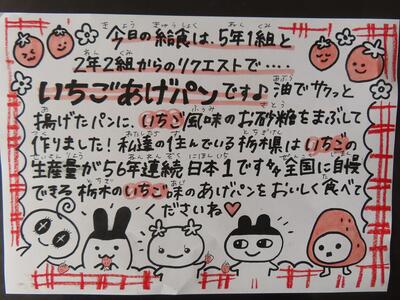 今日の給食は、5年1組と
2年2組からのリクエストで‥‥
いちごあげパンです♪油でサクッと
揚げたパンに、いちご風味のお砂糖をまぶして
作りました!私達の住んでいる栃木県はいちごの
生産量が56年連続日本1です全国に自慢
できる栃木のいちご味のあげパンをおいしく食べて
くださいね♡